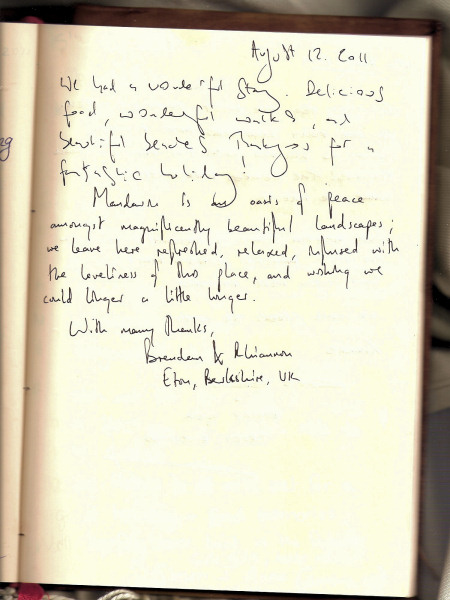 August 12. 2011
We had a wonderful stay. Delicious
food, wonderful walks, and
beautiful beaches. Thankyou for a
fantastic holiday!
Mandarin is an oasis of peace
amongst magnificently beautiful landscapes;
we leave here refreshed, relaxed, infused with
the loveliness of this place, and wishing we
could linger a little longer.
With many thanks,
Brendan & Rhiannon
Eton, Berkshire, UK